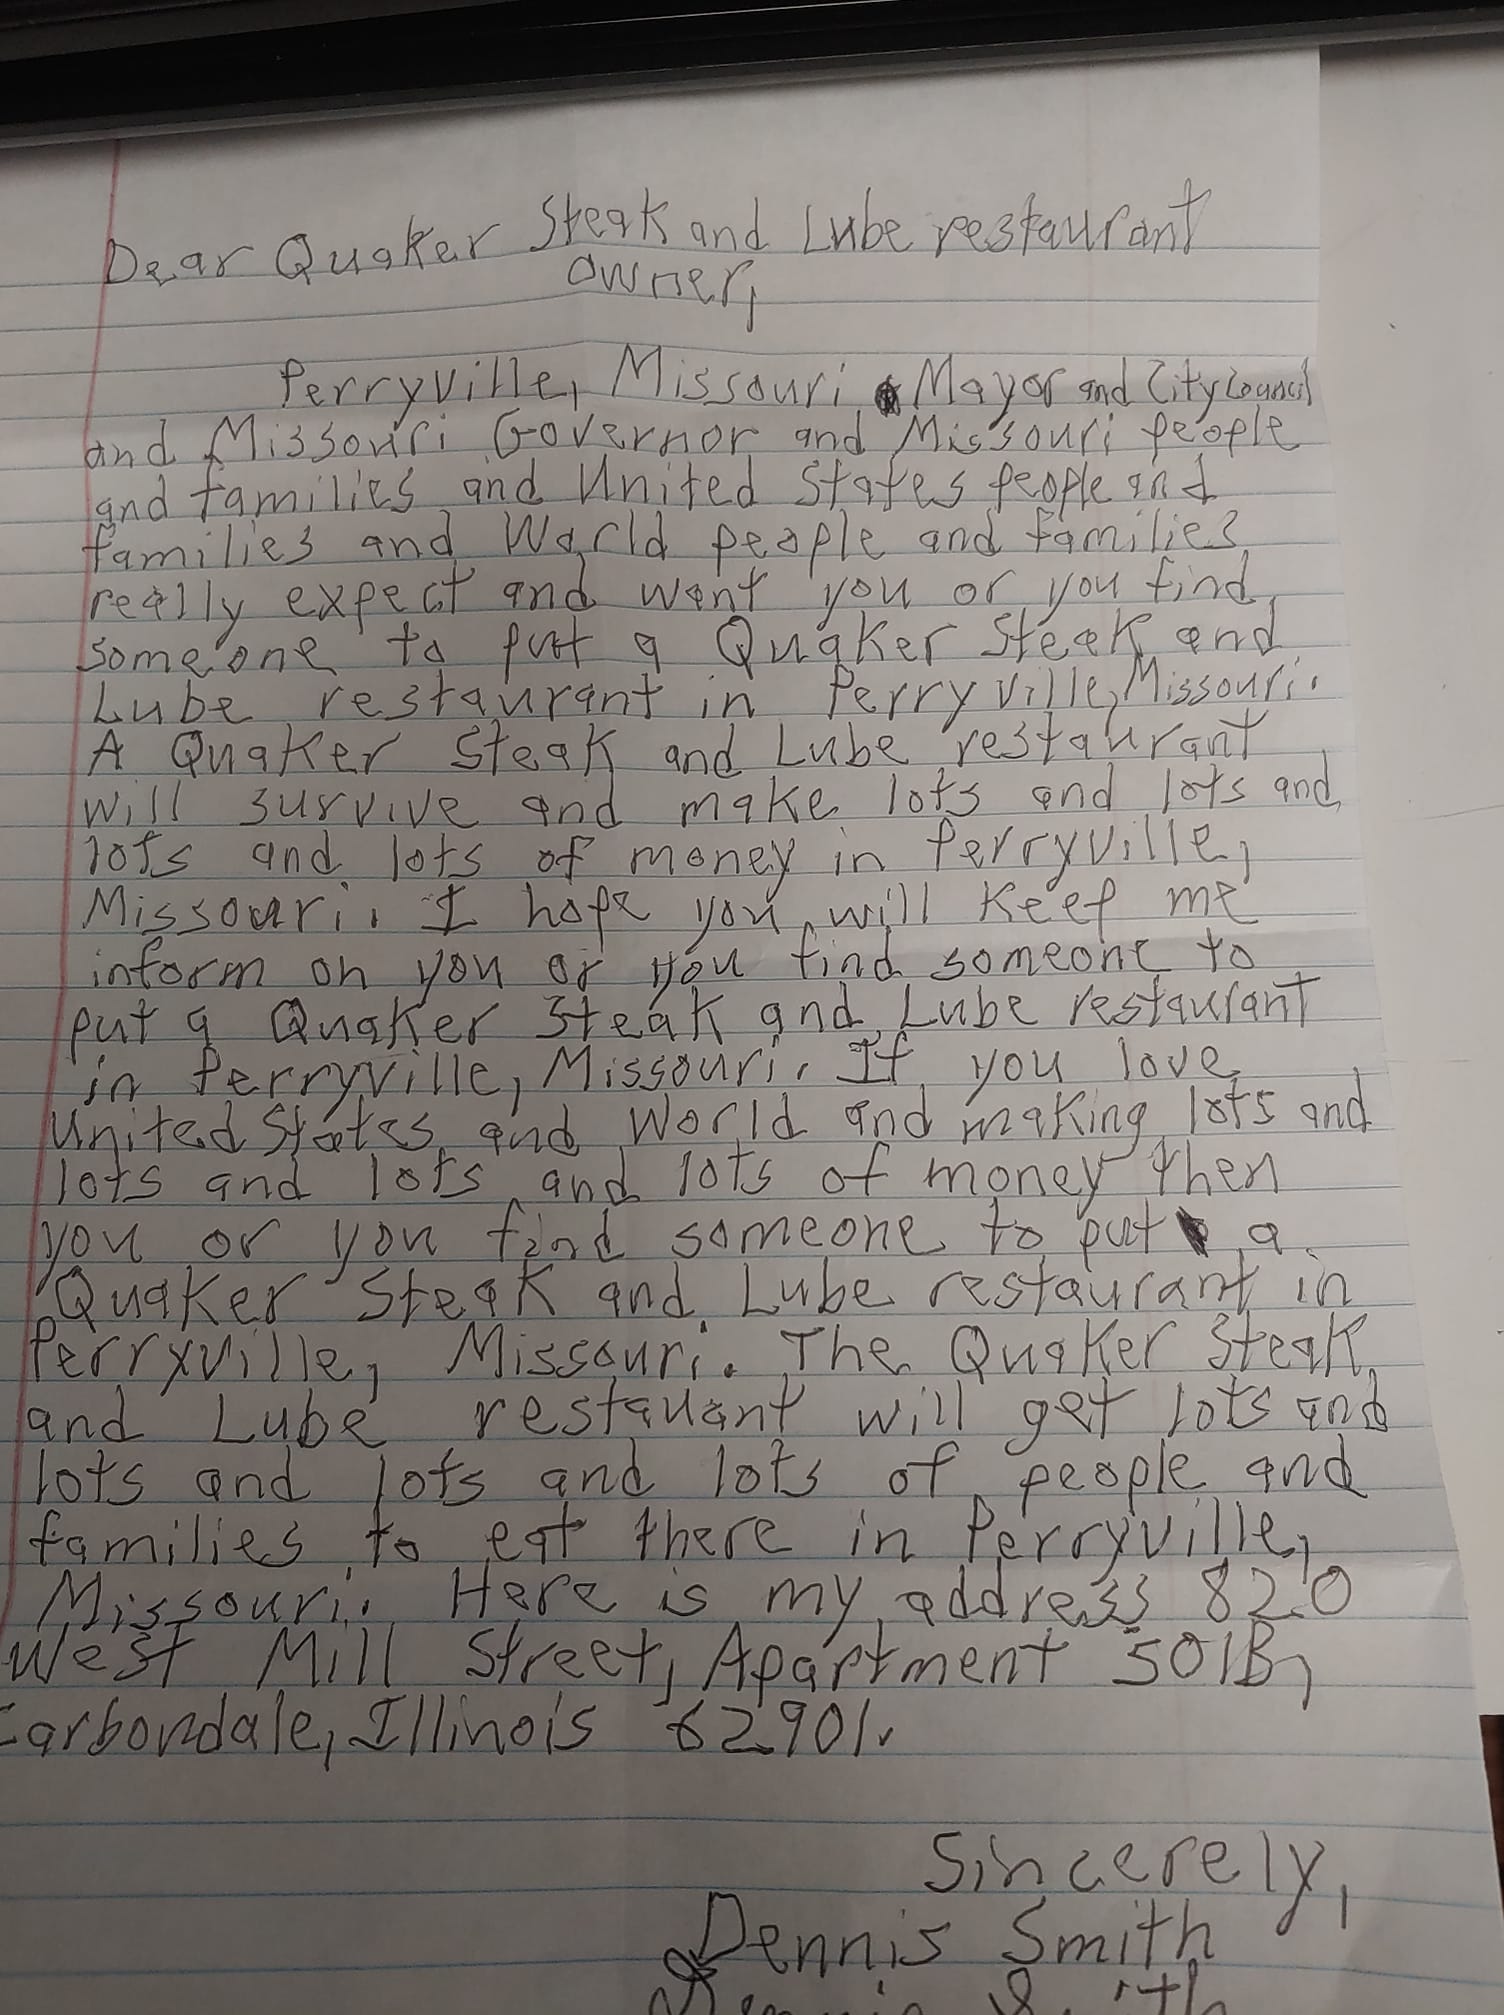 Dear Quaker Steak and Lube restaurant
owner,
Perryville, Missouri Mayor and City Council
and Missouri Governor and Missouri people
and families and United States people and
families and World people and families
really expect and want you or you find
someone to put a Quaker Steak and
Lube restaurant in Perryville, Missouri.
A Quaker Steak and Lube restaurant
will survive and make lots and lots and
lots and lots of money in Perryville,
Missouri. I hope you will keep me
inform on you or you find someone to
put a Quaker Steak and Lube restaurant
in Perryville, Missouri. If you love
United States and World and making lots and
lots and lots and lots of money then
you or you find someone to put a
Quaker Steak and Lube restaurant in
Perryville, Missouri. The Quaker Steak
and Lube restauant will get lots and
lots and lots and lots of people and
families to eat there in Perryville,
Missouri. Here is my address 820
West Mill Street, Apartment 501B,
Carbondale, Illinois 62901.
Sincerely,
Dennis Smith
Dennis Smith